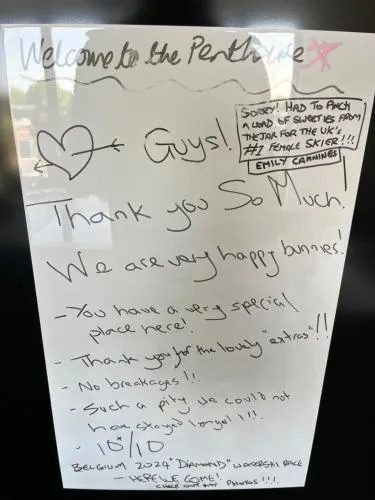 Welcome to the Penthouse
Guys!
SORRY! HAD TO PINCH
A LOAD OF SWEETIES FROM
THE JAR FOR THE UK'S
#1 FEMALE SKIER!!!
EMILY CANNINGS
Thank you So Much!
We are very happy bunnies!
- You have a very special
place here!
- Thank you for the lovely "extras"!!
- No breakages!!!
- Such a pity we could not
have stayed longer!!!
- 10*/10
BELGIUM 2024 "DIAMOND" WATERSKI RACE
- HERE WE COME!
CHECK OUT MY PHOTOS!!!